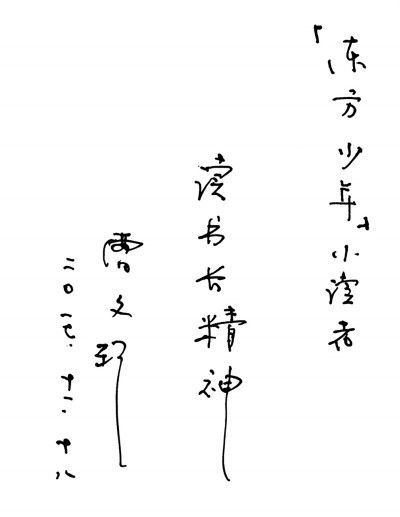 「东方少年」小读者
读书长精神
曹文轩
二〇一七.十二.十八